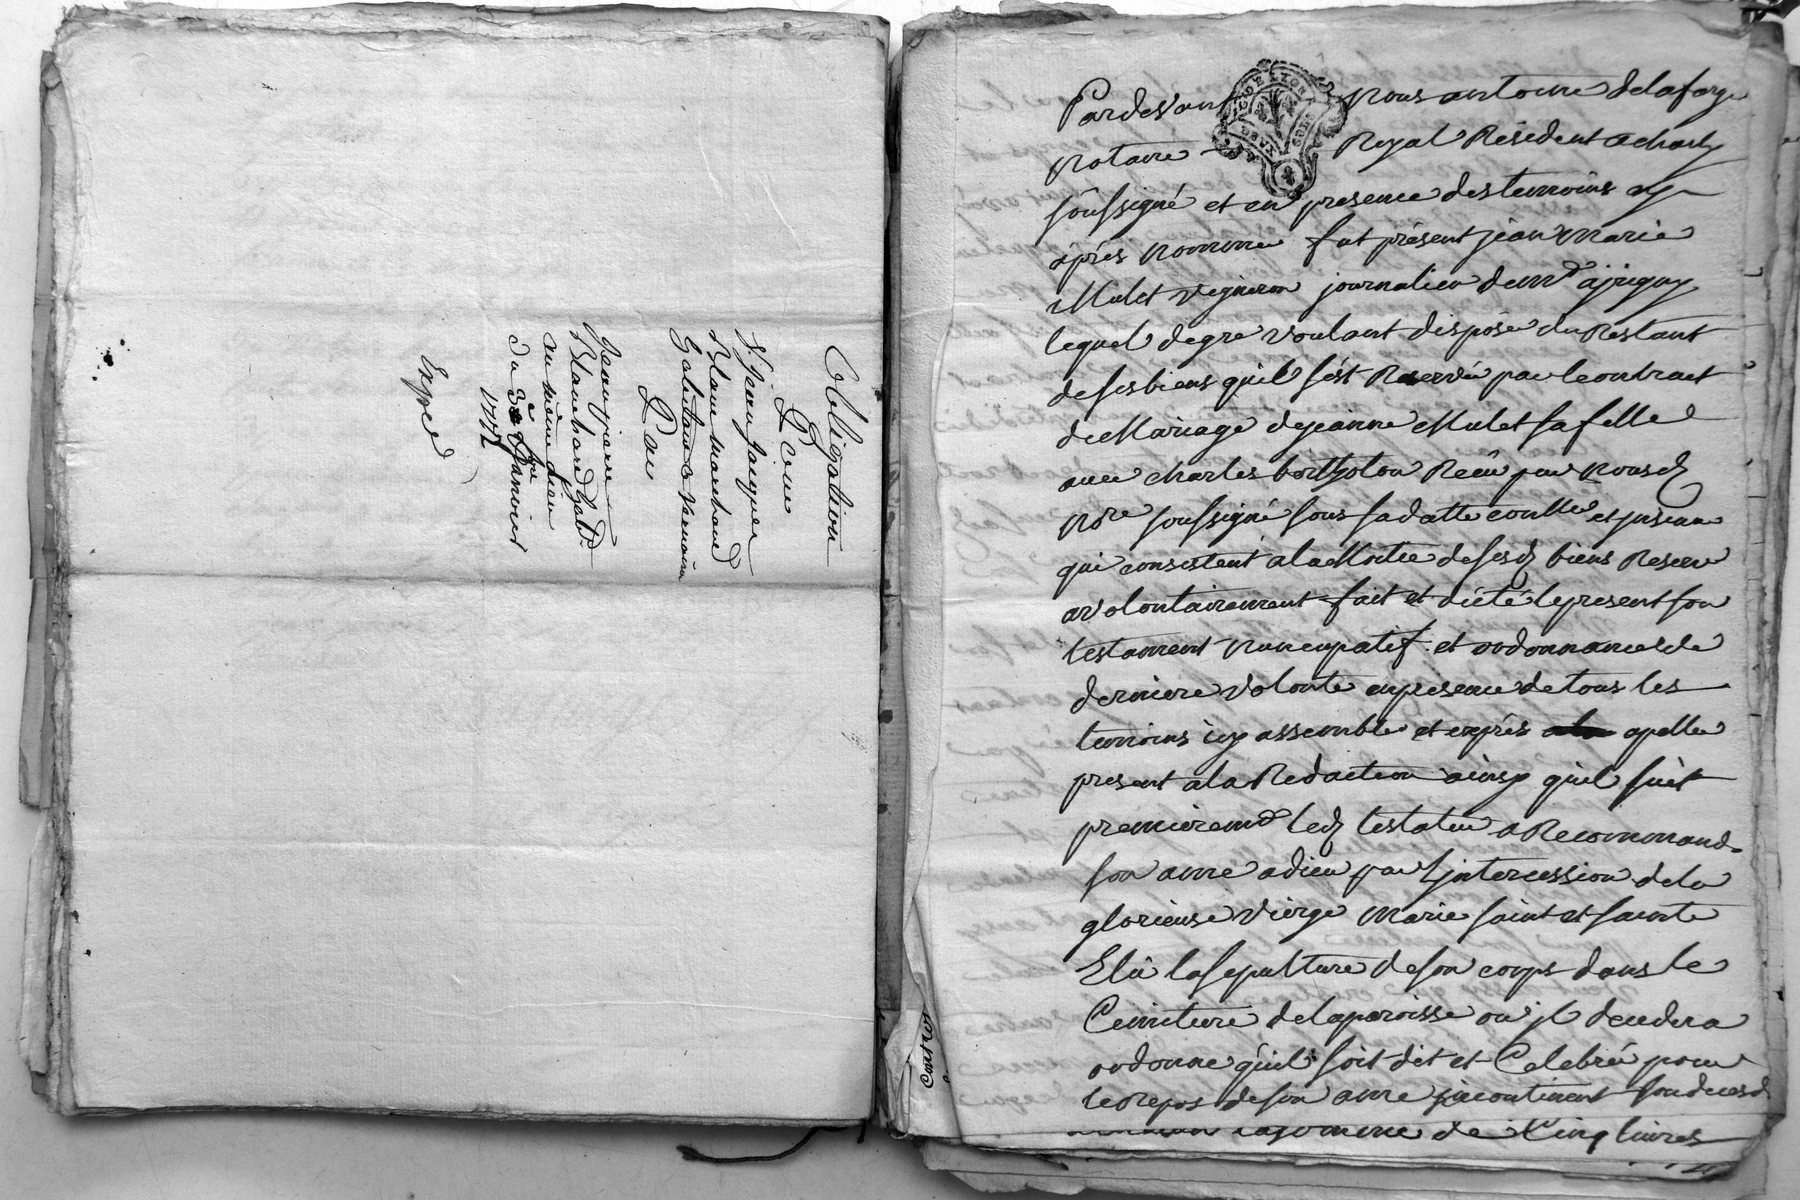 Obligation
Pour
S. Jean Jaques
Blanc marchand
habitant a Vernaison
Par
Jean pierre
Blanchard habt.
au même lieu
du 3e Janvier
1772
Expéd
Pardevant Nous antoine delafarge
Notaire Royal Résident a charly
soussigné et en presence des temoins cy
après nommé fut présent jean marie
Mulet vigneron journalier dem.t a jrigny
lequel de gre voulant disposé du Restant
de ses biens qu'il s'est Reservée par le contract
de Mariage de jeanne Mulet sa fille
avec charles bertholon Recû par nous d
No.re soussigné sous sa datte conttlé et jnsinue
qui consistent a la Moitie de ses d biens Reservé
a volontairement fait et dicté le present son
testament Nuncupatif et ordonnances de
derniere volonte en presence de tous les
temoins icy assemblé et exprés apellé
present a la Redaction ainsy qu'il suit
premierem.t led testateur a Recommandé
son ame a dieu par l'jntercession de la
glorieuse vierge marie saint et sainte
Elû la sepulture de son corps dans le
Cemitiere de la paroisse ou jl decedera
ordonne qu'il soit dit et Celebrée pour
le repos de son ame jncontinent son deces d
la somme de Cinq livres